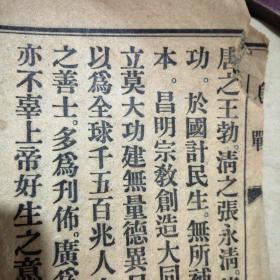 唐之王勃。清之張永清。
功。於國計民生。無所
本。昌明宗教創造大同
立莫大功建無量德異
以爲全球千五百兆人
之善士。多爲刊佈。廣爲
亦不辜上帝好生之意